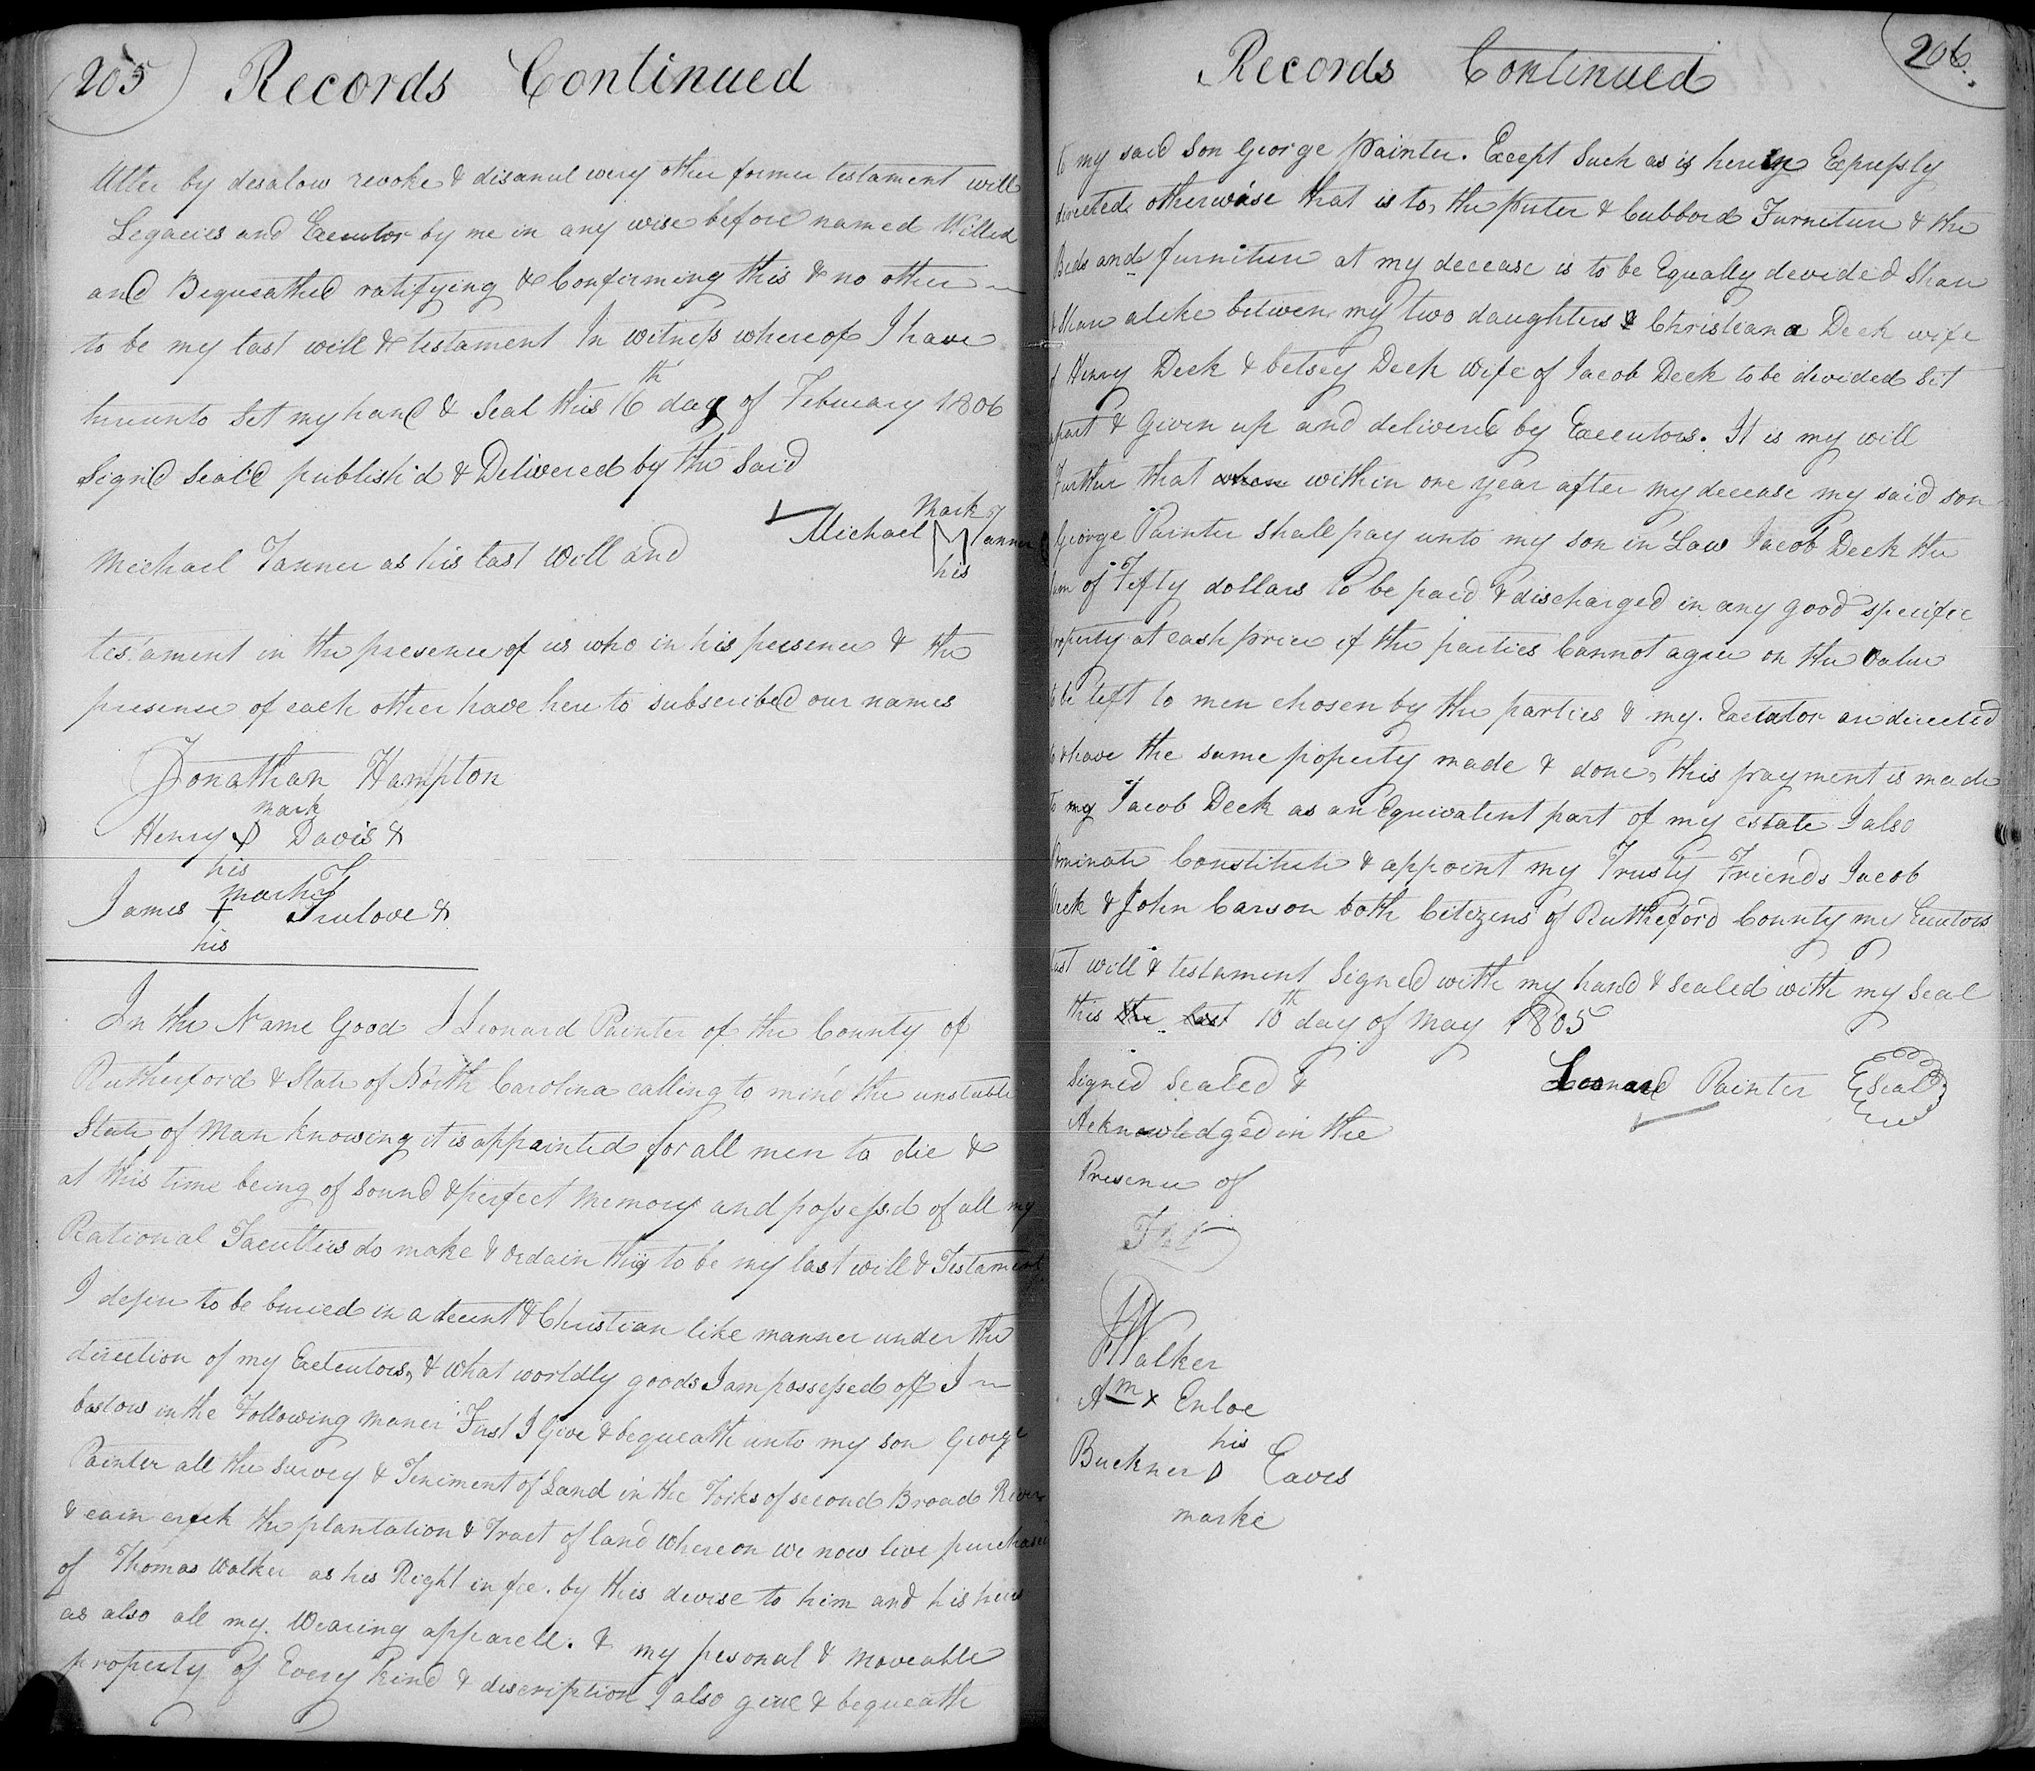 205 Records Continued
Utter by desalow revoke & disanul every other former testament will
Legacies and Executor by me in any wise before named Willed
and Bequeathed ratifying & Confirming this & no other
to be my last will & testament In witness whereof I have
hereunto Set my hand & Seal this 16th day of February 1806
Sign'd Seal'd publish'd & Delivered by the Said
mark
Michael M Tanner
his
Michael Tanner as his last Will and
testament in the presence of us who in his presence & the
presence of each other have here to subscribed our names
Jonathan Hampton
mark
Henry D Davis &
his
mark
James + Trulove &
his
In the Name Good I Leonard Painter of the County of
Rutherford & State of North Carolina calling to mind the unstable
State of Man knowing it is appointed for all men to die &
at this time being of sound & perfect Memory and possess'd of all my
Rational Facultius do make & ordain this to be my last will & Testament
I desire to be buried in a decent & Christian like manner under the
direction of my Exeutors, & what worldly goods I am possessed off I
bestow in the Following maner First I Give & bequeath unto my son George
Painter all the survey & Teniment of Land in the Forks of second Broad River
& cain creek the plantation & Tract of land whereon we now live purchased
of Thomas Walker as his Right in fee. by this devise to him and his heirs
as also all my Wearing apparell. & my pesonal & moveable
property of Every Kind & discription I also give & bequeath
Records Continued 206.
to my said Son George Painter. Except Such as is herein Expressly
directed otherwise that is to, the Puter & Cubbord Furniture & the
Beds and furniture at my decease is to be Equally devided Share
& Share alike between my two daughters & Christeana Deck wife
of Henry Deck & betsey Deck wife of Jacob Deck to be divided Set
apart & Given up and delivered by Executors. It is my will
Further that when within one year after my decease my said son
George Painter shall pay unto my son in Law Jacob Deck the
sum of Fifty dollars to be paid & discharged in any good specific
property at cash price if the parties Cannot agree on the value
to be left to men chosen by the parties & my. Exetutor are directed
to have the same poperty made & done, this payment is made
To my Jacob Deck as an Equivalent part of my estate I also
nominate Constitute & appoint my Trusty Friends Jacob
Deck & John Carson both Citizens of Rutheford County my Exeutors
last will & testament Signed with my hand & sealed with my Seal
this the last 10th day of May 1805
Signed Sealed &
Leonard Painter Seal
Acknowledged in the
Presence of
Walker
Am x Enloe
his
Buckner D Eaves
marke